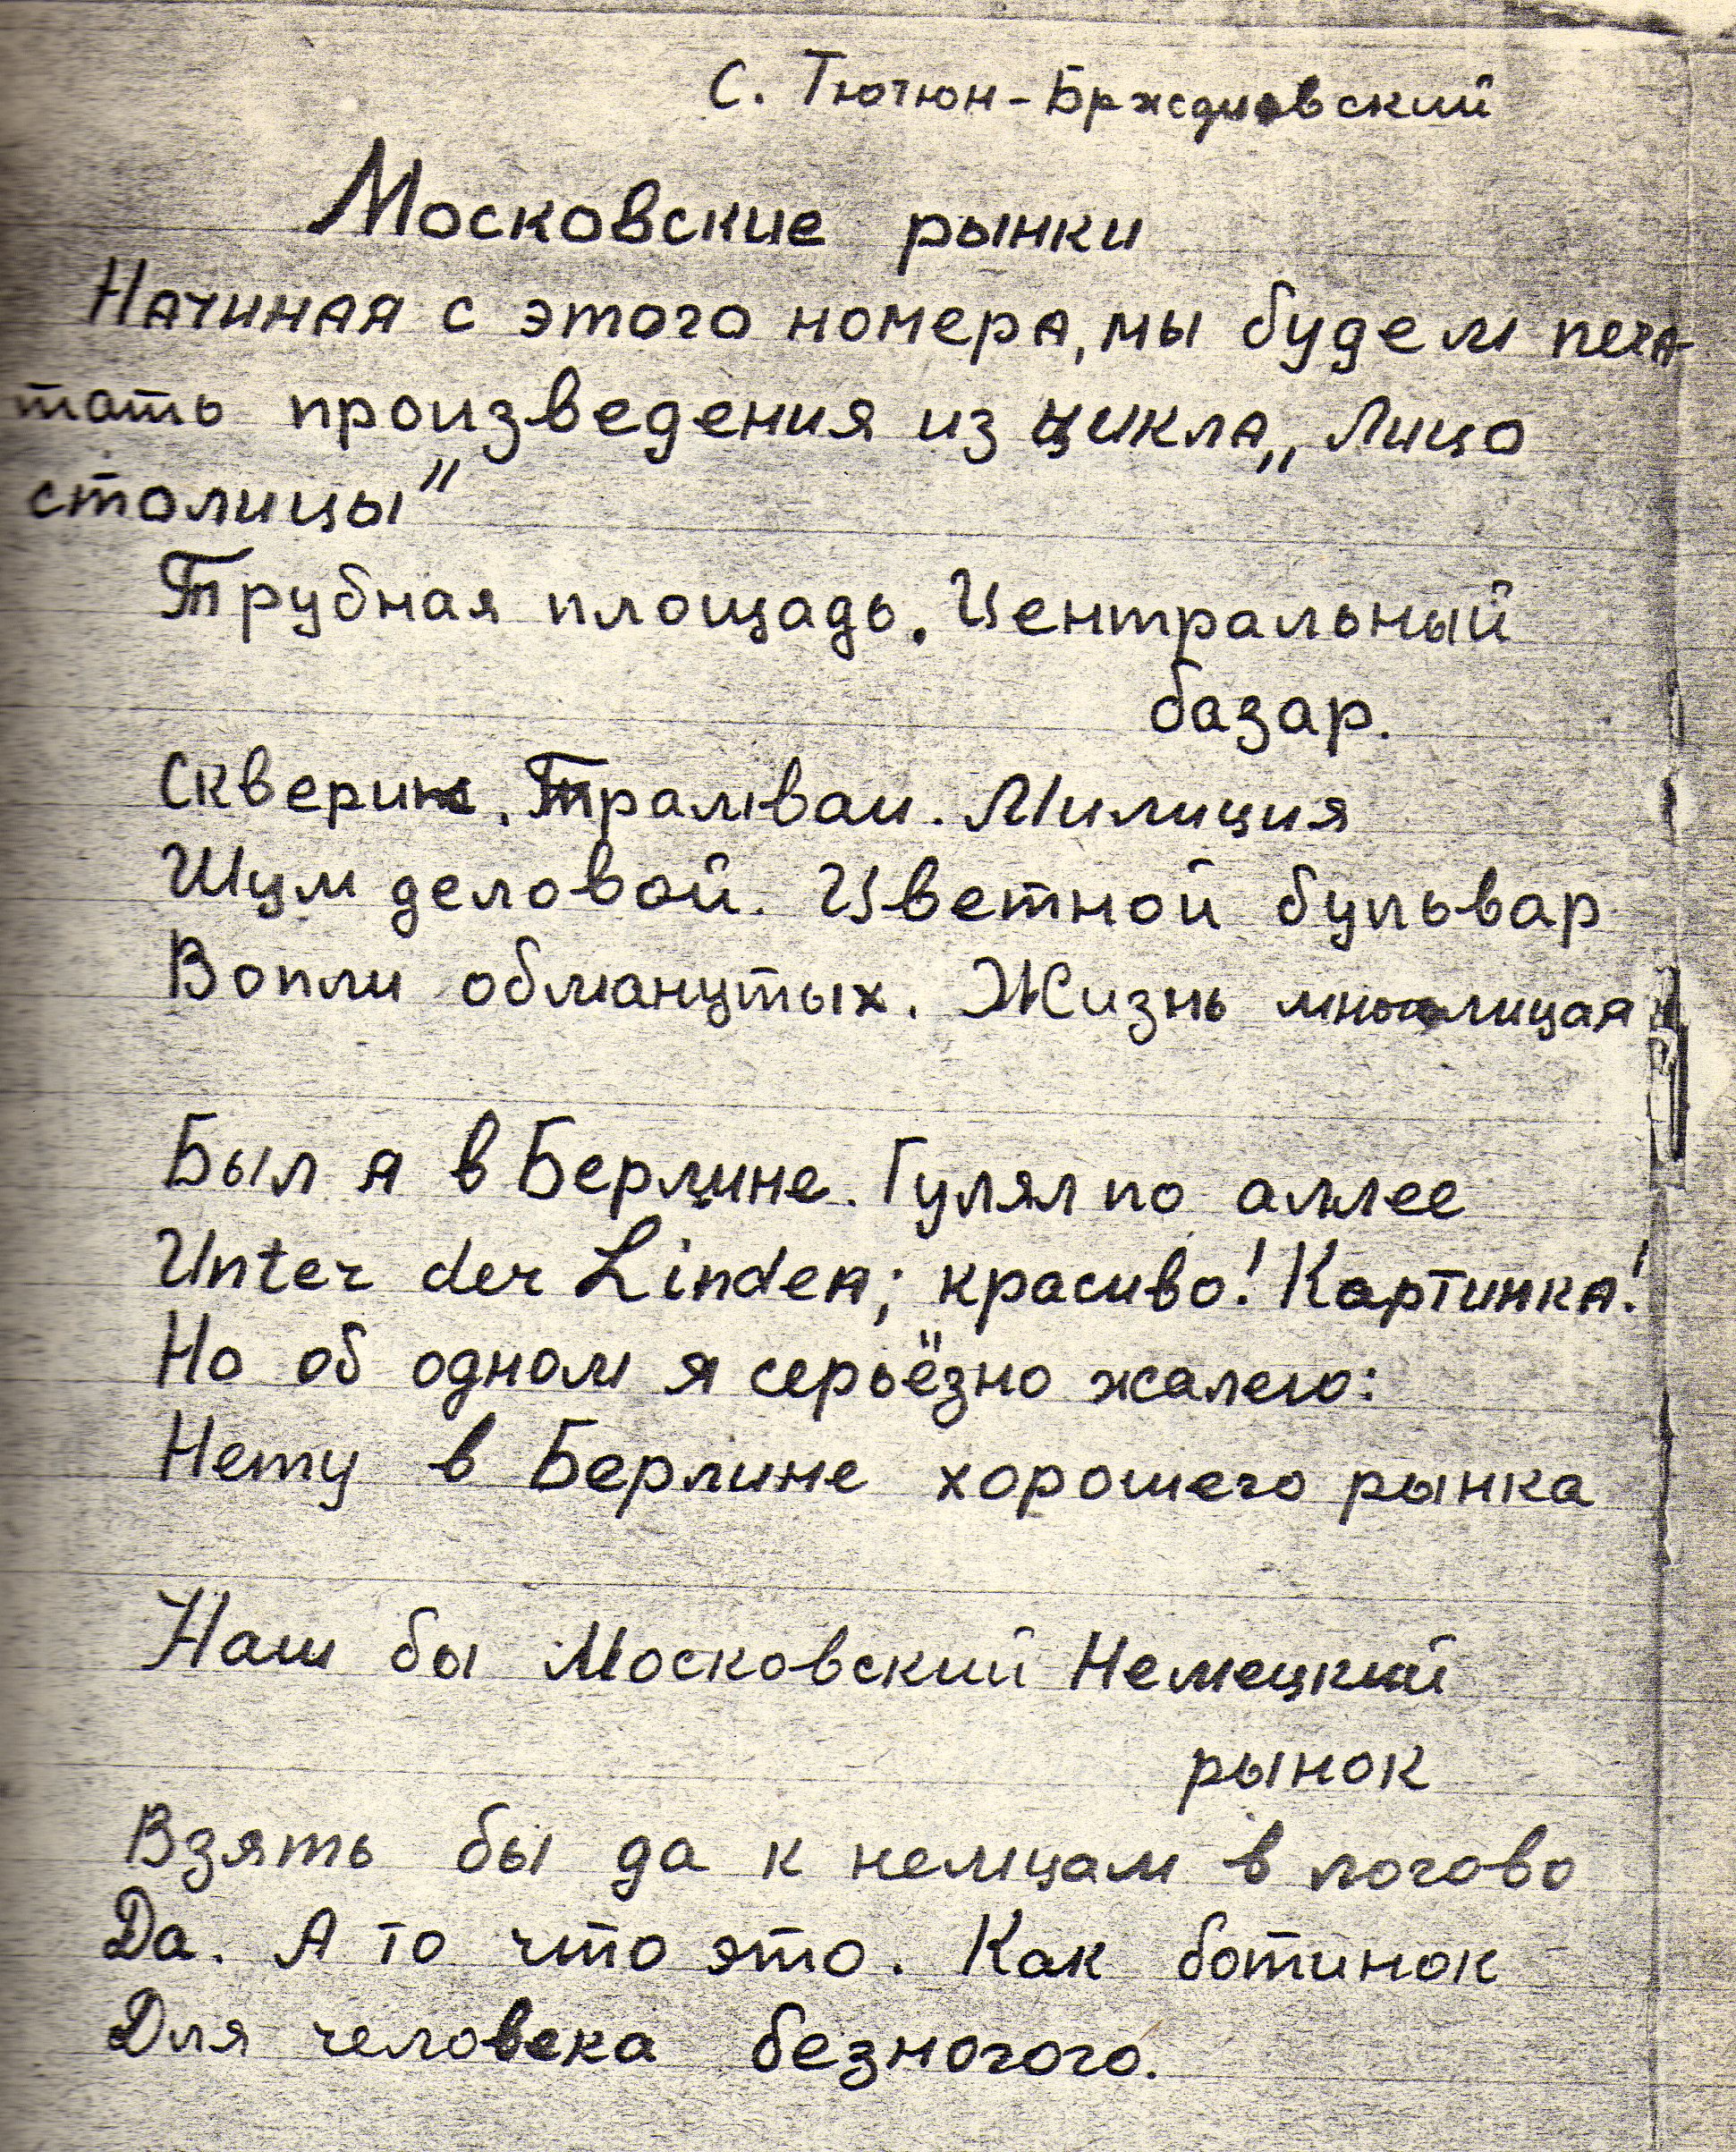 С. Тютюн-Бржедновский
Московские рынки
Начиная с этого номера, мы будем печа-
тать произведения из цикла „Лицо
столицы"
Трубная площадь. Центральный
базар.
Скверик. Трамваи. Милиция
Шум деловой. Цветной бульвар
Вопли обманутых. Жизнь многолицая
Был я в Берлине. Гулял по аллее
Unter der Linden; красиво! Картинка!
Но об одном я серьёзно жалею:
Нету в Берлине хорошего рынка
Наш бы Московский Немецкий
рынок
Взять бы да к немцам в логово
Да. А то что это. Как ботинок
Для человека безногого.